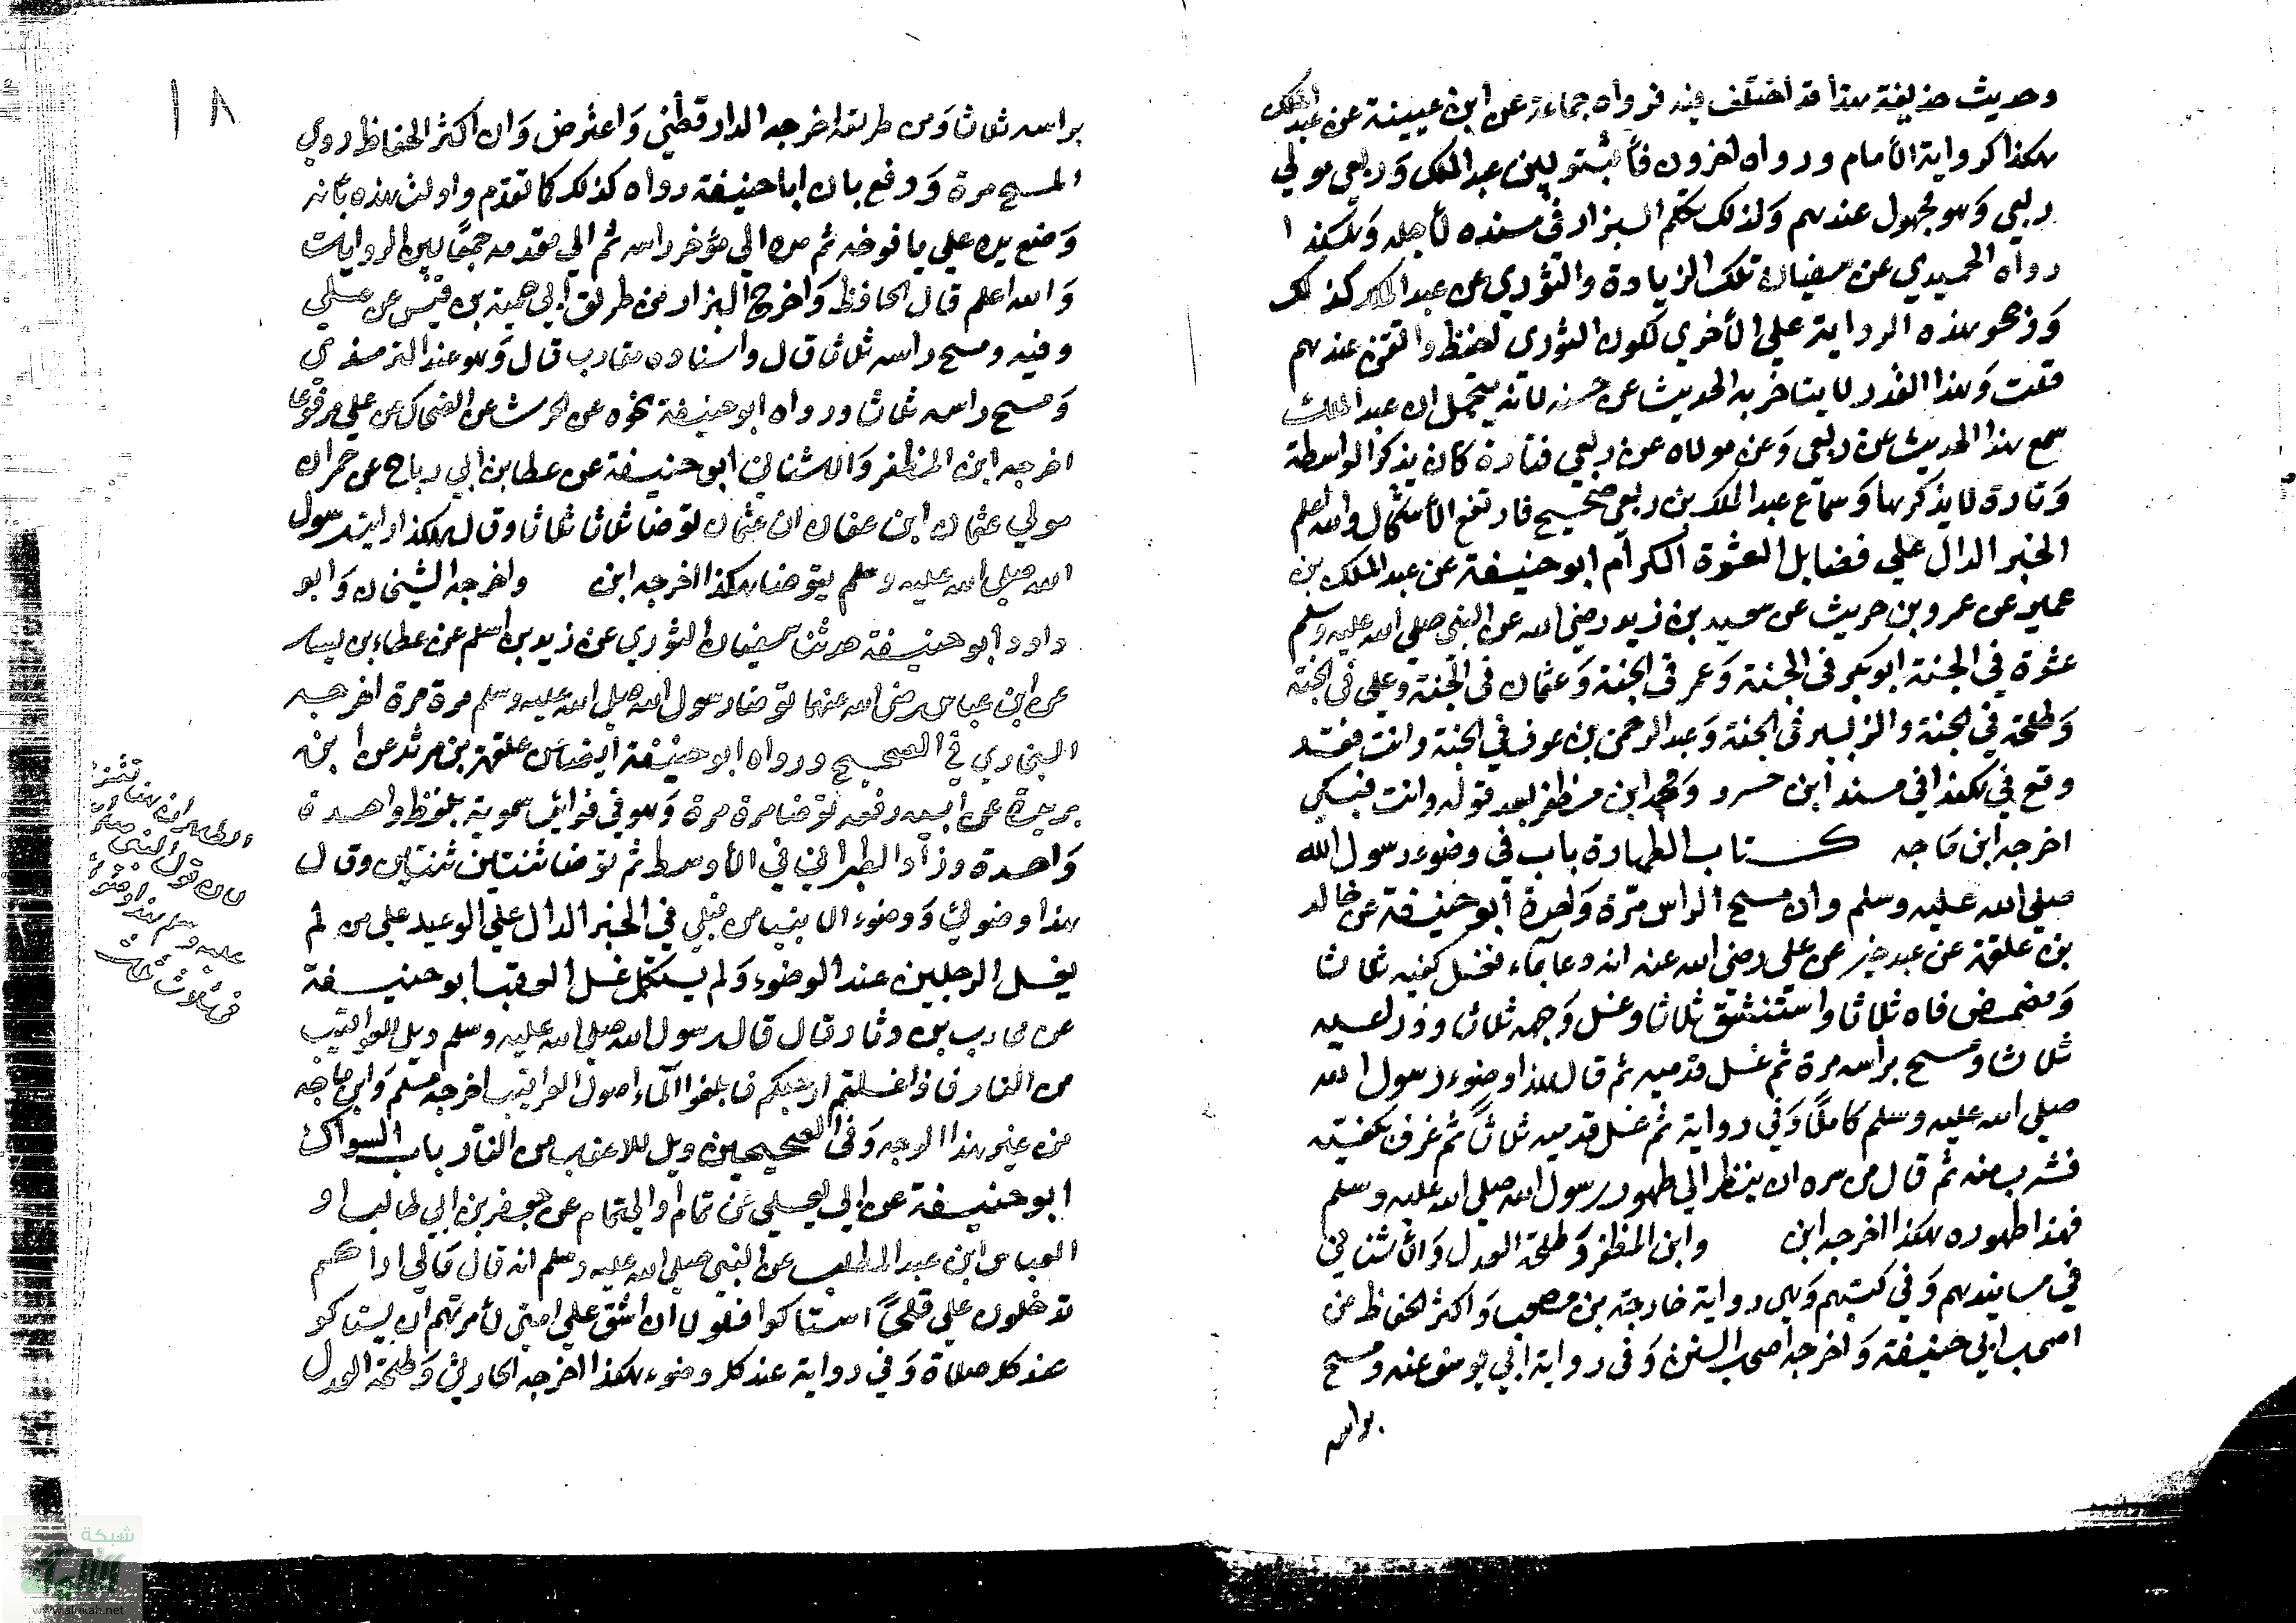 وحديث حذيفة هذا قد اختلف فيه فرواه جماعة عن ابن عيينة عن عبد الملك
هكذا كرواية الأمام ورواه اخرون فأثبتو بين عبد الملك وربعي مولي
ربعي وهو مجهول عندهم ولذلك تكلم البزار في مسنده لأجله وهكذا
رواه الحميدي عن سفيان تلك الزيادة والثوري عن عبد الملك كذلك
ورجحو هذه الرواية علي الأخري لكون الثوري احفظ واتقن عندهم
قلت وهذا القدر لا يتاخر به الحديث عن حسنه لأنه يحتمل ان عبد الملك
سمع هذا الحديث عن ربعي وعن مولاه عن ربعي فتارة كان يذكر الواسطة
وتارة لا يذكرها وسماع عبد الملك بن ربعي صحيح فارتفع الأشكال والله اعلم
الخبر الدال علي فضايل العشرة الكرام ابو حنيفة عن عبد الملك بن
عمير عن عمرو بن حريث عن سعيد بن زيد رضي الله عن النبي صلي الله عليه وسلم
عشرة في الجنة ابو بكر في الجنة وعمر في الجنة وعثمان في الجنة وعلي في الجنة
وطلحة في الجنة والزبير في الجنة وعبد الرحمن بن عوف في الجنة وانت فقد
وقع في هكذا في مسند ابن خسرو ومحمد ابن مظفر بعد قوله وانت فبكي
اخرجه ابن ماجه كتاب الطهارة باب في وضوء رسول الله
صلي الله عليه وسلم وان مسح الراس مرة واحدة ابو حنيفة عن خالد
بن علقمة عن عبد خير عن علي رضي الله عنه انه دعا بماء فغسل كفيه ثلاثا
ومضمض فاه ثلاثا واستنشق ثلاثا وغسل وجهه ثلاثا وذراعيه
ثلاثا ومسح براسه مرة ثم غسل قدميه ثم قال هذا وضوء رسول الله
صلي الله عليه وسلم كاملا وفي رواية ثم غسل قدميه ثلاثا ثم غرف بكفيه
فشرب منه ثم قال من سره ان ينظر الي طهور رسول الله صلي الله عليه وسلم
فهذا طهوره هكذا اخرجه ابن وابن المظفر وطلحة العدل والاشناني
في مسانيدهم وفي كتبهم وهي رواية خارجة بن مصعب واكثر الحفاظ عن
اصحاب ابي حنيفة واخرجه اصحاب السنن وفي رواية ابي يوسف عنه ومسح
براسه
١٨
براسه ثلاثا ومن طريقه اخرجه الدارقطني واعترض وان اكثر الحفاظ روي
المسح مرة ودفع بان ابا حنيفة رواه كذلك كما تقدم واولت هذه بأنه
وضع يده علي يافوخه ثم مده الي مؤخر راسه ثم الي مقدمه جمعا بين الروايات
والله اعلم قال الحافظ واخرج البزار من طريق ابي حية بن قيس عن علي
وفيه ومسح راسه ثلاثا قال واسناده مقارب قال وهو عند الترمذي
ومسح راسه ثلاثا ورواه ابو حنيفة نحوه عن الحرث عن الضحاك عن علي مرفوعا
اخرجه ابن المظفر والاشناني ابو حنيفة عن عطا بن ابي رباح عن حمران
مولي عثمان ابن عفان ان عثمان توضا ثلاثا ثلاثا وقال هكذا رايت رسول
الله صلي الله عليه وسلم يتوضا هكذا اخرجه ابن واخرجه الشيخان وابو
داود ابو حنيفة حدثنا سفيان الثوري عن زيد بن اسلم عن عطاء بن يسار
عن ابن عباس رضي الله عنهما توضا رسول الله صلي الله عليه وسلم مرة مرة اخرجه
البخاري في الصحيح ورواه ابو حنيفة ايضا عن علقمة بن مرثد عن ابن
بريدة عن ابيه رفعه توضا مرة مرة وهو في فوائد سموية بلفظ واحدة
واحدة وزاد الطبراني في الأوسط ثم توضا ثنتين ثنتين وقال
هذا وضوئي ووضوء الانبيا من قبلي في الخبر الدال علي الوعيد علي من لم
يغسل الرجلين عند الوضوء ولم يستكمل غسل العقب ابو حنيفة
عن محارب بن دثار قال قال رسول الله صلي الله عليه وسلم ويل للعراقيب
من النار فاذا غسلتم ارجلكم فابلغوا الماء اصول العراقيب اخرجه مسلم وابن ماجه
من غير هذا الوجه وفي الصحيحين ويل للاعقاب من النار باب السواك
ابو حنيفة عن ابي يعلي عن تمام او ابي تمام عن جعفر بن ابي طالب او
العباس ابن عبد المطلب عن النبي صلي الله عليه وسلم انه قال مالي اراكم
تدخلون علي قلحا استاكوا فلولا ان اشق علي امتي لأمرتهم ان يستاكو
عند كل صلاة وفي رواية عند كل وضوء هكذا اخرجه الحارثي وطلحة العدل
شبكة
الألوكة
www.alukah.net